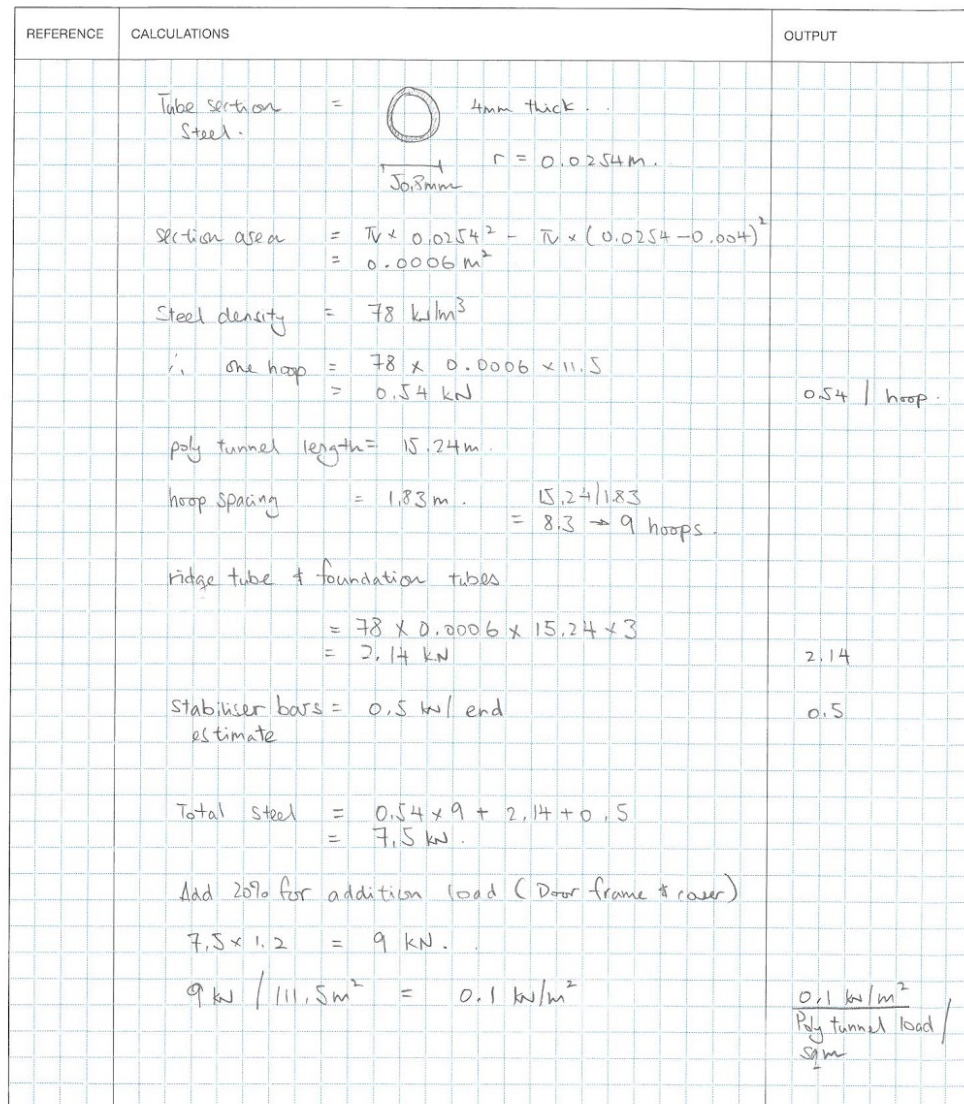 REFERENCE CALCULATIONS OUTPUT
Tube section = 4mm thick.
Steel.
r = 0.0254m.
50.8mm
section area = π × 0.0254² - π × (0.0254-0.004)²
= 0.0006 m²
Steel density = 78 kN/m³
∴ one hoop = 78 × 0.0006 × 11.5
= 0.54 kN 0.54 / hoop.
poly tunnel length = 15.24m.
hoop spacing = 1.83m. 15.24/1.83
= 8.3 → 9 hoops.
ridge tube & foundation tubes
= 78 × 0.0006 × 15.24 × 3
= 2.14 kN 2.14
Stabiliser bars = 0.5 kN/ end 0.5
estimate
Total steel = 0.54 × 9 + 2.14 + 0.5
= 7.5 kN.
Add 20% for addition load (Door frame & cover)
7.5 × 1.2 = 9 kN.
9 kN / 111.5m² = 0.1 kN/m² 0.1 kN/m²
Poly tunnel load /
sqm